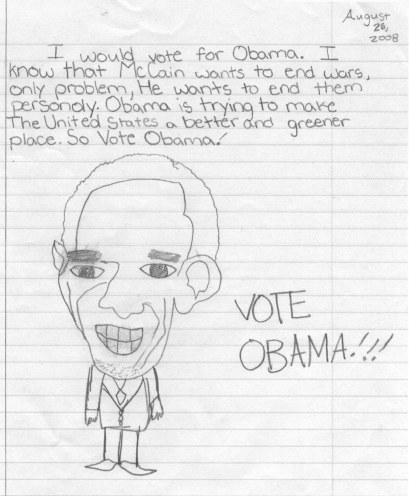 August
26,
2008
I would vote for Obama. I
know that McCain wants to end wars,
only problem, He wants to end them
personoly. Obama is trying to make
The United States a better and greener
place. So Vote Obama!
VOTE
OBAMA!!!